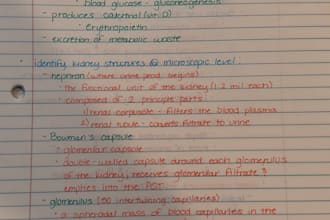 blood glucose - gluconeogenesis
- produces calcitriol (vit. D)
· Erythropoietin
- excretion of metabolic waste
· Identify kidney structures @ microscopic level:
- nephron (where urine prod. begins)
· the functional unit of the kidney (1.2 mil each)
· composed of 2 principle parts:
1) renal corpuscle - filters the blood plasma
2) renal tubule - converts filtrate to urine
- Bowman's capsule
· glomerular capsule
· double-walled capsule around each glomerulus
of the kidney, receives glomerular filtrate &
empties into the PCT
- glomerulus (50 intertwining capillaries)
· a spheroidal mass of blood capillaries in the